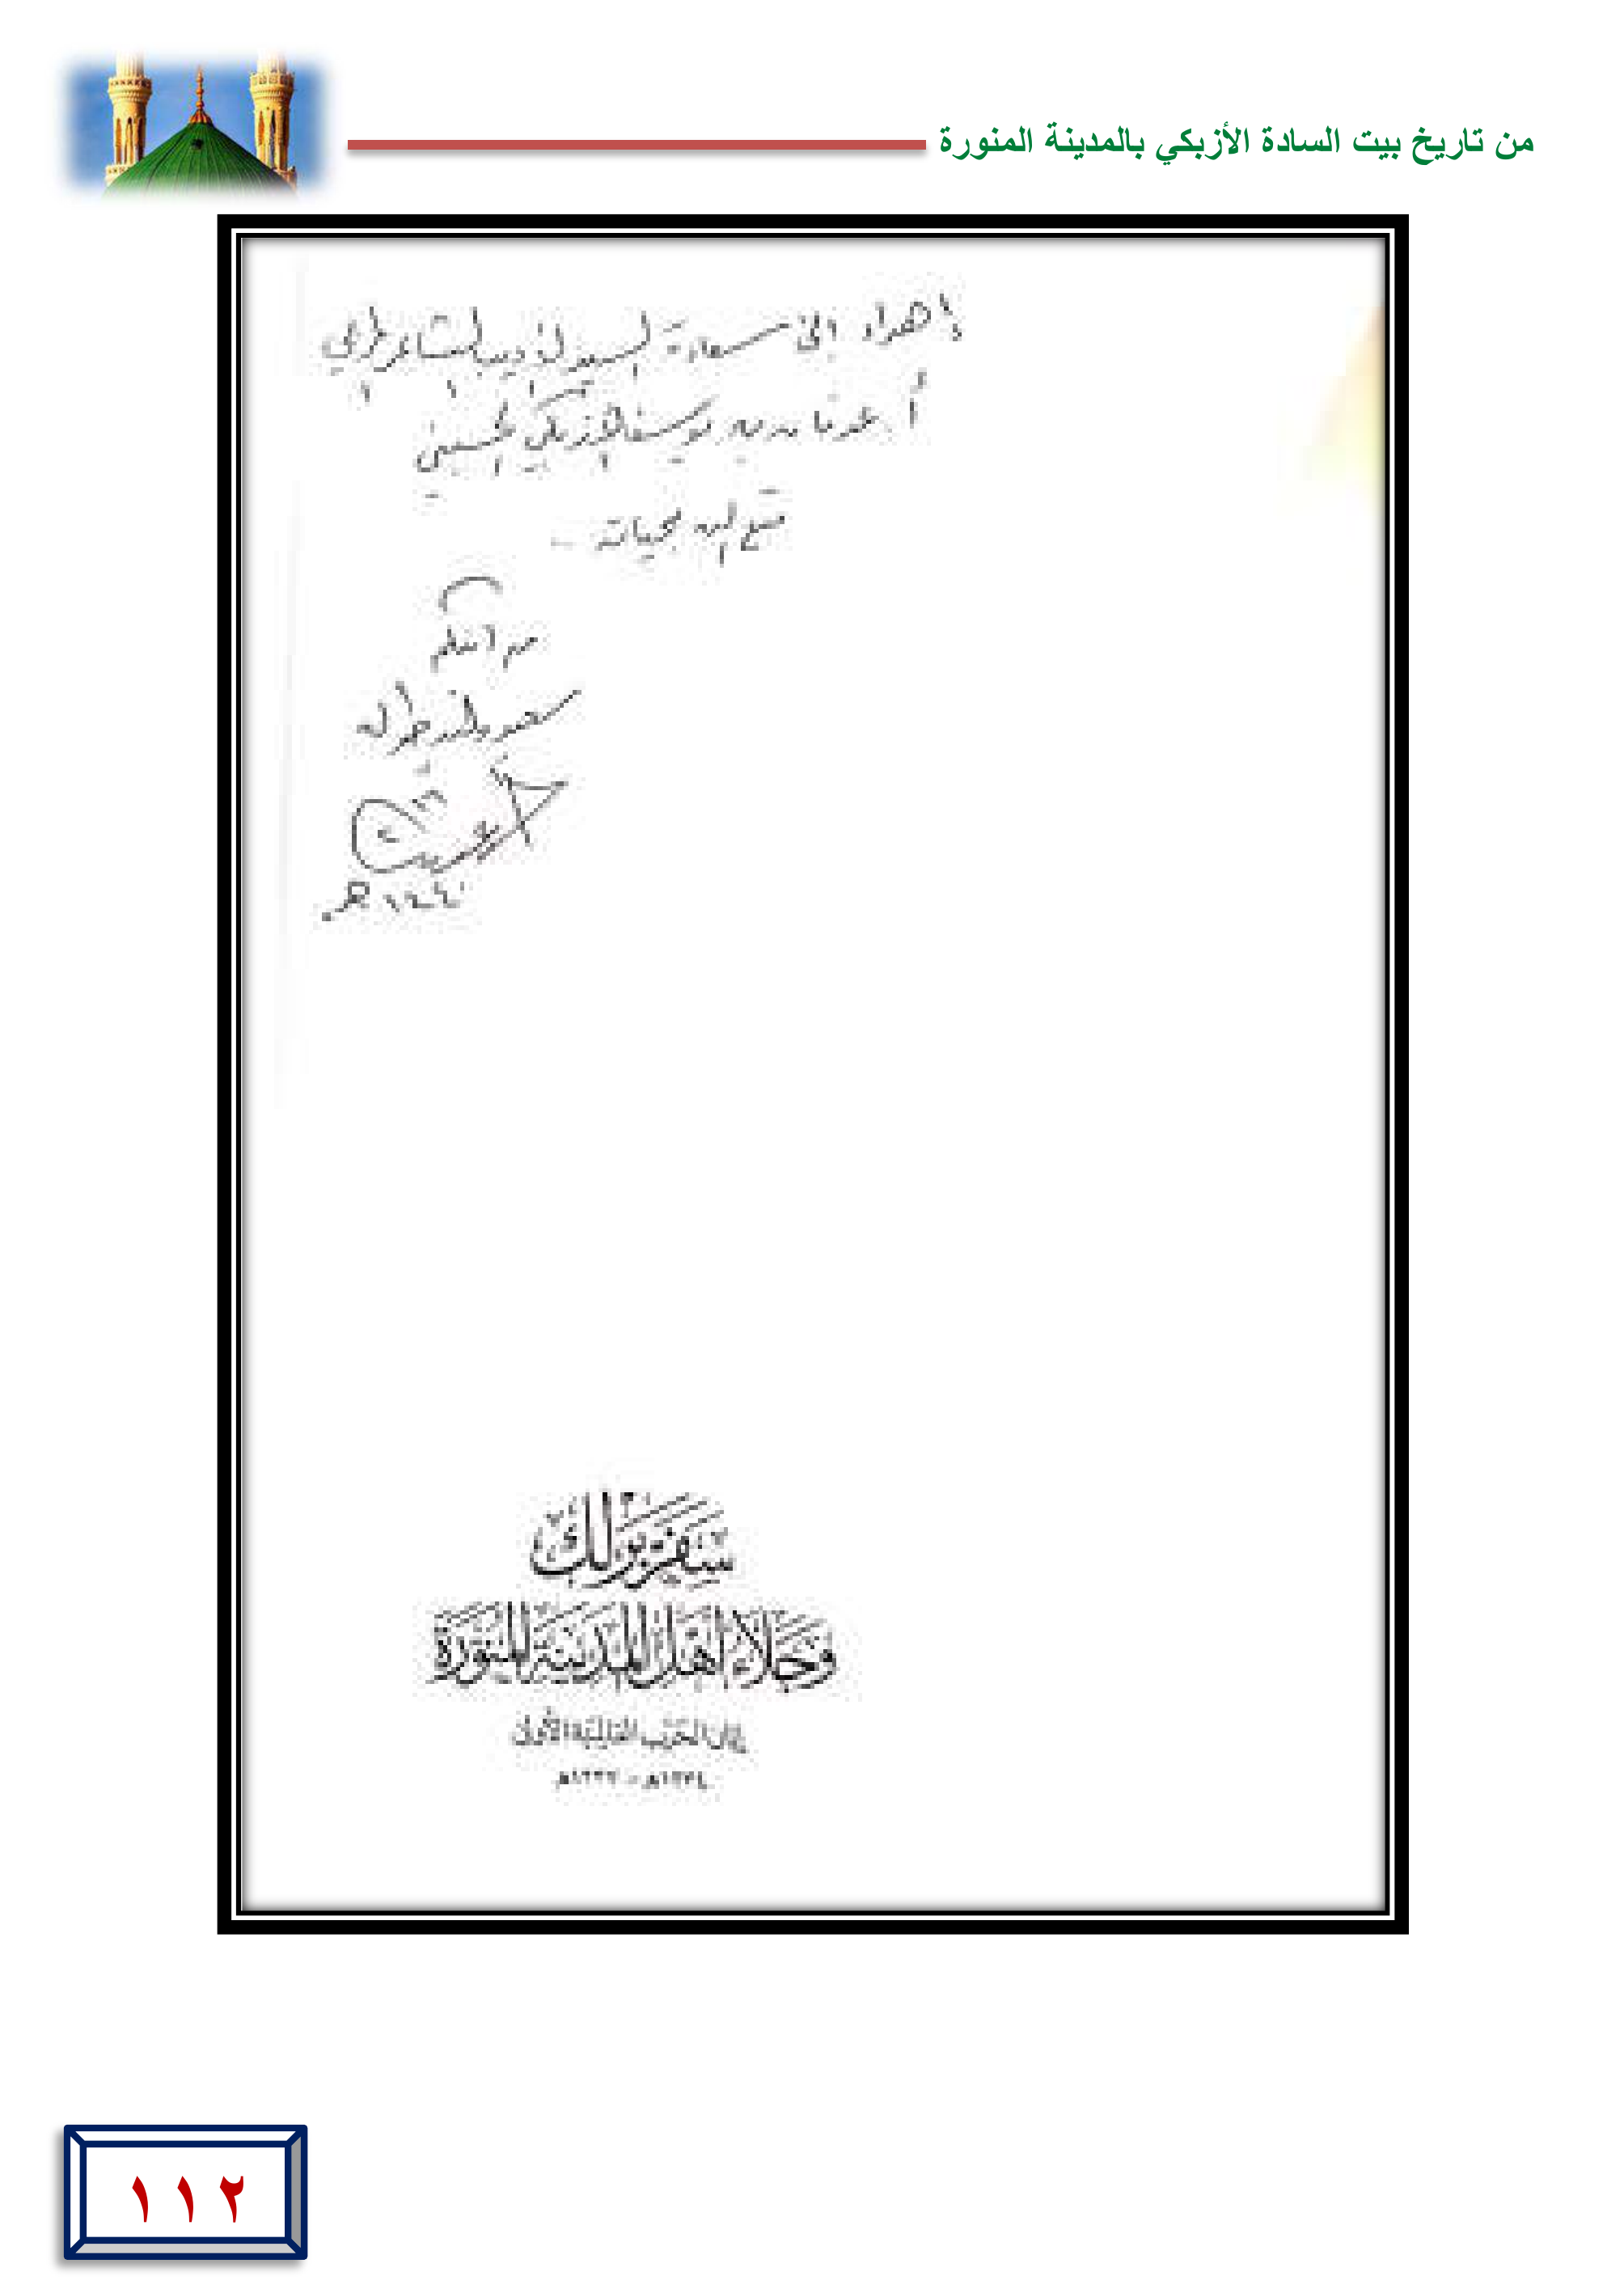 من تاريخ بيت السادة الأزبكي بالمدينة المنورة
إهداء إلى سعادة السيد الأديب الشاعر
أ. عدنان يوسف الأزبكي الحسيني
متع الله بحياته
من
سعيد طوله
١٤٤٠هـ
سفر برلك
وجلاء أهل المدينة المنورة
إبان الحرب العالمية الأولى
١٣٣٤هـ - ١٣٣٧هـ
١١٢